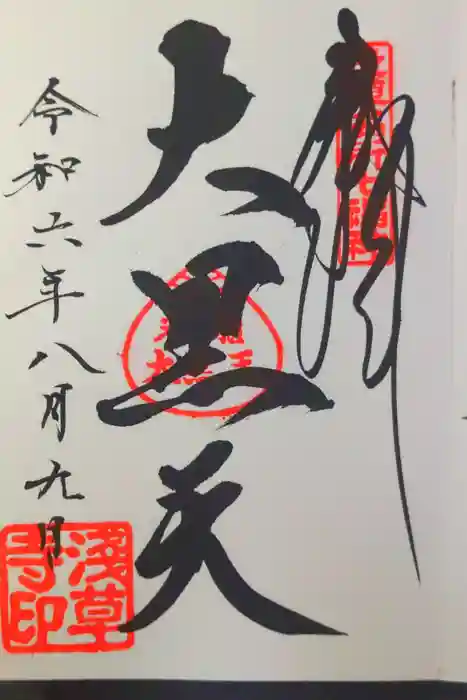 奉拝
大黒天
令和六年八月九日
淺草寺印